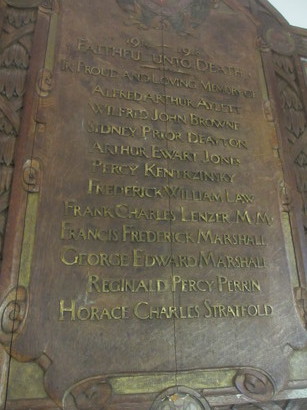 Faithful unto Death
In Proud and Loving Memory of
Alfred Arthur Aylett
Wilfred John Browne
Sidney Prior Deayton
Arthur Ewart Jones
Percy
Frederick William Law
Frank Charles Lenzer M.M.
Francis Frederick Marshall
George Edward Marshall
Reginald Percy Perrin
Horace Charles Stratfold